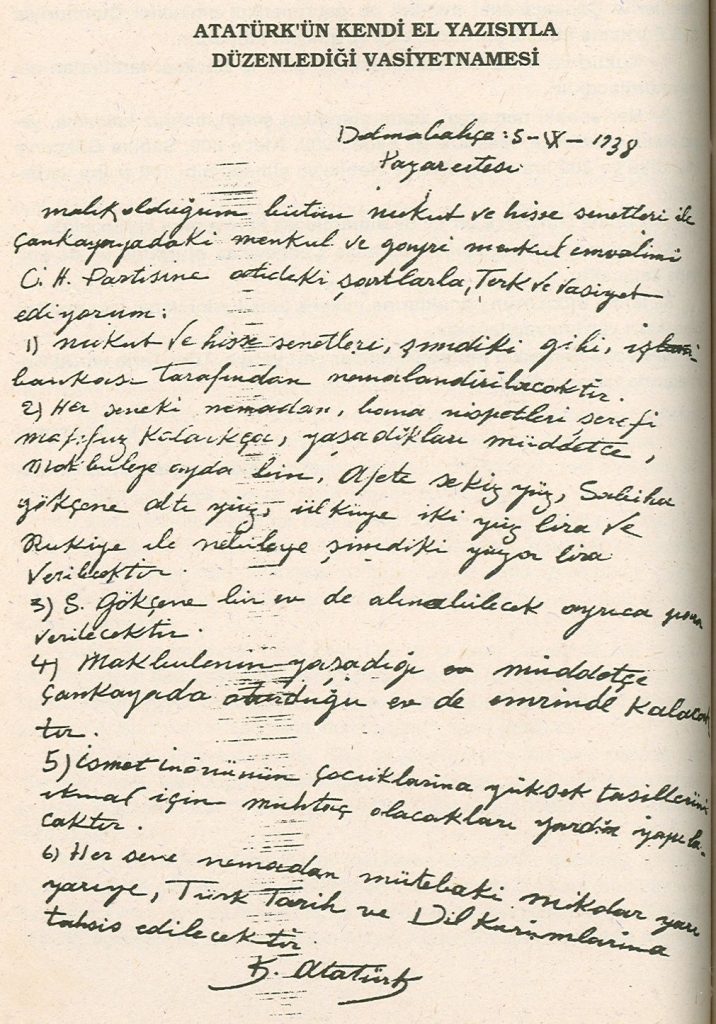 ATATÜRK'ÜN KENDİ EL YAZISIYLA
DÜZENLEDİĞİ VASİYETNAMESİ
Dolmabahçe: 5-IX-1938
Pazarertesi
malik olduğum bütün nukut ve hisse senetleri ile
Çankayayadaki menkul ve gayri menkul emvalimi
C. H. Partisine atideki şartlarla, Terk ve vasiyet
ediyorum:
1) nukut ve hisse senetleri, şimdiki gibi, iş
bankası tarafından nemalandırılacaktır.
2) Her seneki nemadan, bana nispetleri şerefi
mahfuz kaldıkça, yaşadıkları müddetçe,
Makbuleye ayda bin, Afete sekiz yüz, Sabiha
gökçene altı yüz, ülküye iki yüz lira ve
Rukiye ile nebileye şimdiki yüzer lira
verilecektir.
3) S. Gökçene bir ev de alınabilecek ayrıca para
verilecektir.
4) Makbulenin yaşadığı müddetçe
Çankayada oturduğu ev de emrinde kalacak
tır.
5) ismet inönünün çocuklarına yüksek tasillerini
ikmal için muhtaç olacakları yardım yapıla-
caktır.
6) Her sene nemadan mütebaki miktar yarı
yarıye, Türk Tarih ve Dil Kurumlarına
tahsis edilecektir.
K. Atatürk